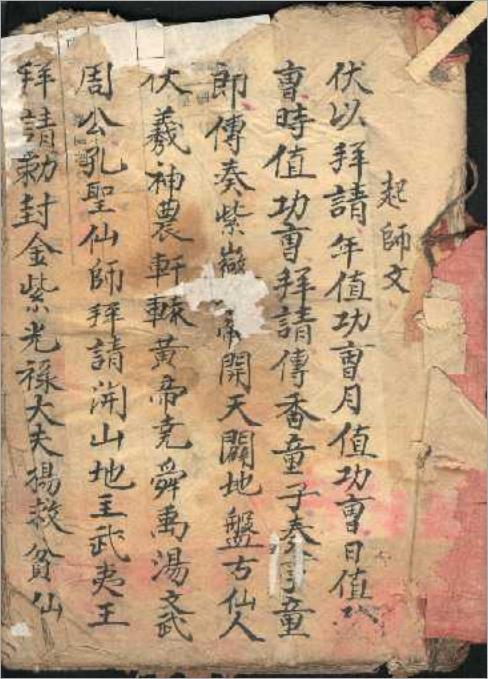 起師文
伏以拜請年值功曹月值功曹日值
曹時值功曹拜請傳香童子奏童
即傳奏紫嶽帝開天闢地盤古仙人
伏羲神農軒轅黃帝堯舜禹湯文武
周公孔聖仙師拜請開山地主武夷王
拜請勅封金紫光祿大夫楊救貧仙